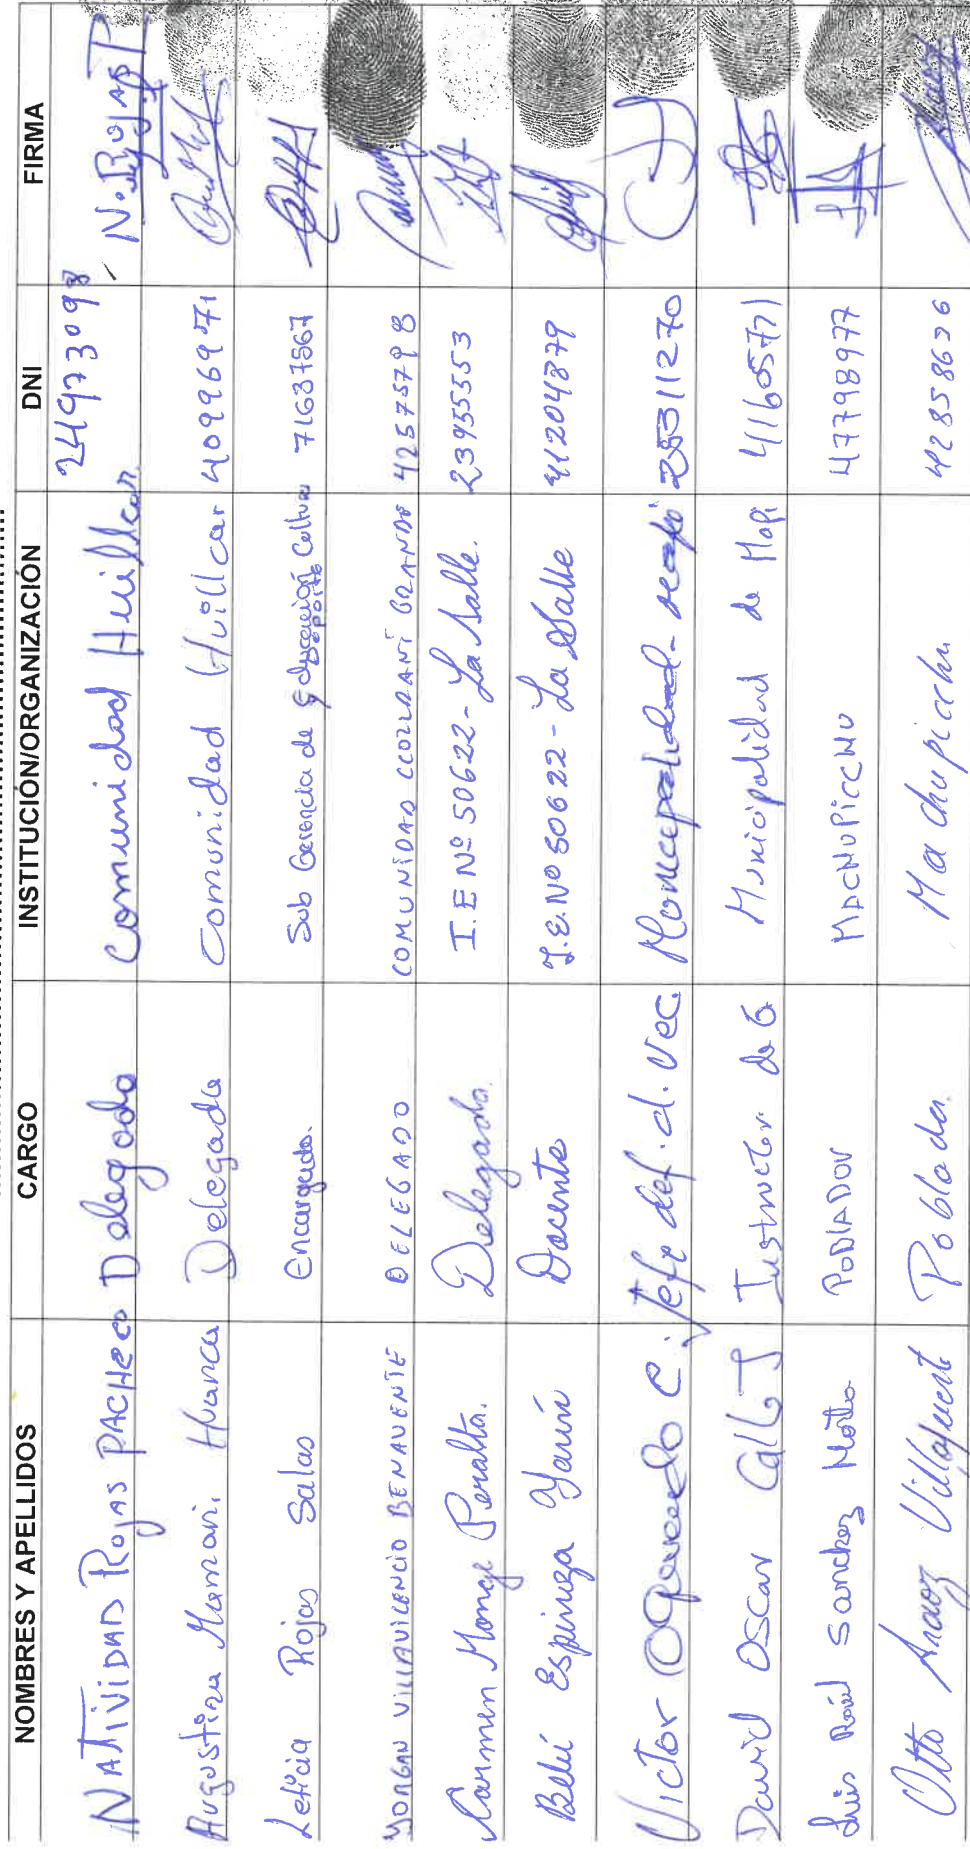 NOMBRES Y APELLIDOS CARGO INSTITUCIÓN/ORGANIZACIÓN DNI FIRMA
NATIVIDAD ROJAS PACHECO Delegada Comunidad Huillcar 24973098 N. Rojas P
Agustina Mamani Huanca Delegada Comunidad Huillcar 40996971
Leticia Rojas Salas Encargada. Sub Gerencia de Educación Cultura Deporte 71637567
YORGAN VILLAVICENCIO BENAVENTE DELEGADO COMUNIDAD CCORAO GRANDE 42575798
Carmen Monge Peralta. Delegada. I.E Nº 50622 - La Salle. 23955553
Belú Espinoza Yarín Docente I.E. Nº 50622 - La Salle 41204879
Victor Oquendo C. Jefe def. d. Vec. Municipalidad 25311270
David Oscar Calle J Instructor de G Municipalidad de 41605771
Luis Raúl Sanchez Motta POBLADOR MACHUPICCHU 47798977
Otto Araoz Villafuerte Poblador Machupicchu 42858626